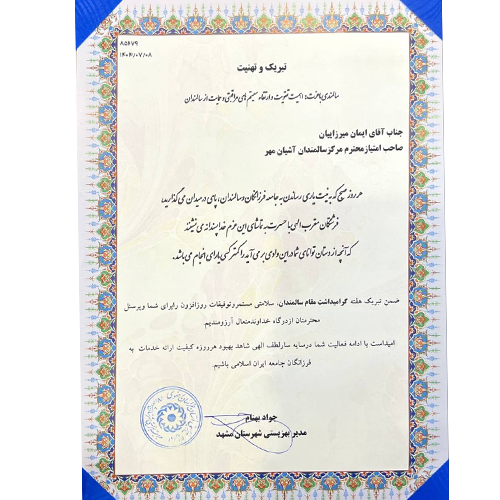 ۸۵۶۷۹
۱۴۰۴/۰۷/۰۸
تبریک و تهنیت
سالمندی با عزت؛ اهمیت تقویت و ارتقاء سیستم های مراقبتی و حمایت از سالمندان
جناب آقای ایمان میرزاییان
صاحب امتیاز محترم مرکز سالمندان آشیان مهر
هر روز صبح که به نیت یاری رساندن به جامعه فرزانگان و سالمندان، پای در میدان می گذارید،
فرشتگان مقرب الهی با حسرت به تماشای این عزم خداپسندانه می نشینند
که آنچه از دستان توانای شما در این وادی بر می آید را کمتر کسی یارای انجام می باشد.
ضمن تبریک هفته گرامیداشت مقام سالمندان، سلامتی مستمر وتوفیقات روزافزون رابرای شما وپرسنل
محترمتان ازدرگاه خداوندمتعال آرزومندیم
امیداست با ادامه فعالیت شما درسایه سارلطف الهی شاهد بهبود هرروزه کیفیت ارائه خدمات به
فرزانگان جامعه ایران اسلامی باشیم.
جواد بهنام
مدیر بهزیستی شهرستان مشهد